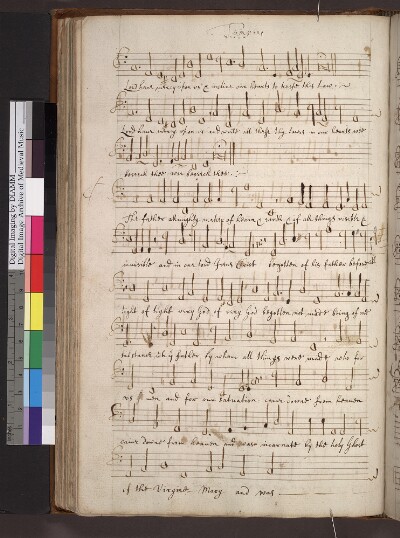 Lord have mercy upon us & incline our hearts to keepe this law
Lord have mercy upon us and write all these thy lawes in our hearts wee
beseech thee wee beseech thee
The father almighty maker of heaven & earth & of all things visible &
invisible and in one lord Jesus Christ begotten of his father before
light of light very God of very God begotten not made being of one
substance wth ye father by whom all things were made who for
us men and for our salvation came downe from heaven
came downe from heaven and was incarnate by the holy Ghost
of the Virgine Mary and was
Digital Imaging by DIAMM
Digital Image Archive of Medieval Music